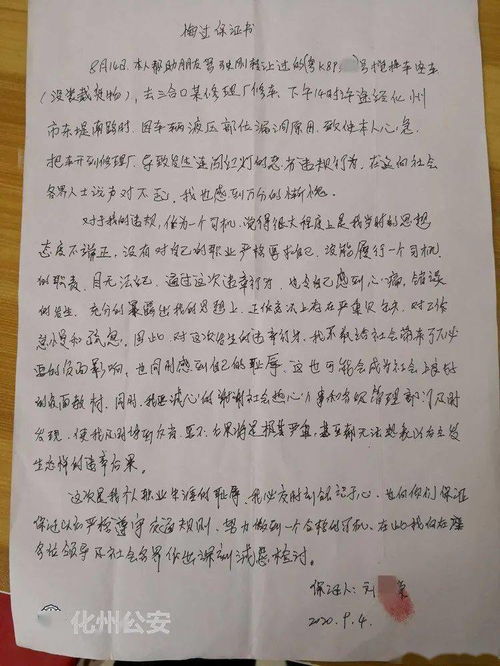 悔过保证书
8月14日,本人帮助朋友驾驶刚转让过的(粤K89 )号 车
(没装载货物),去三合口某修理厂修车,下午14时许途经化州
市东堤南路时,因车辆液压部位漏油原因,致使本人心急
把车开到修理厂,导致发生连闯红灯的恶劣违规行为,在这向社会
各界人士说声对不起,我也感到万分的惭愧。
对于我的违规,作为一个司机,觉得很大程度上是我当时的思想
态度不端正,没有对自己的职业严格要求自己,没能履行一个司机
的职责,目无法纪,通过这次违章行为,也令自己感到心痛,错误
的发生,充分的暴露出我的思想上、工作方法上存在严重 ,对工作
怠慢和疏忽,因此,对这次发生的违章行为,我不敢给社会带来了不必
要的负面影响,也同时感到自己的耻辱,这也可能会成为社会上良好
的反面教材,同时,我要诚心的谢谢社会热心人事和各级管理部门及时
发现,使我及时得到 ,要不,后果将是极其严重,甚至都无法想象以后会发
生怎样的违章后果。
这次是我个人职业生涯的耻辱,我必定时刻铭记于心,也向你们保证
保证以后严格遵守交通规则,努力做到一个合格的司机,在此我向在座
各位领导及社会各界作出深刻诚恳检讨。
保证人:刘
2020.9.4.
化州公安